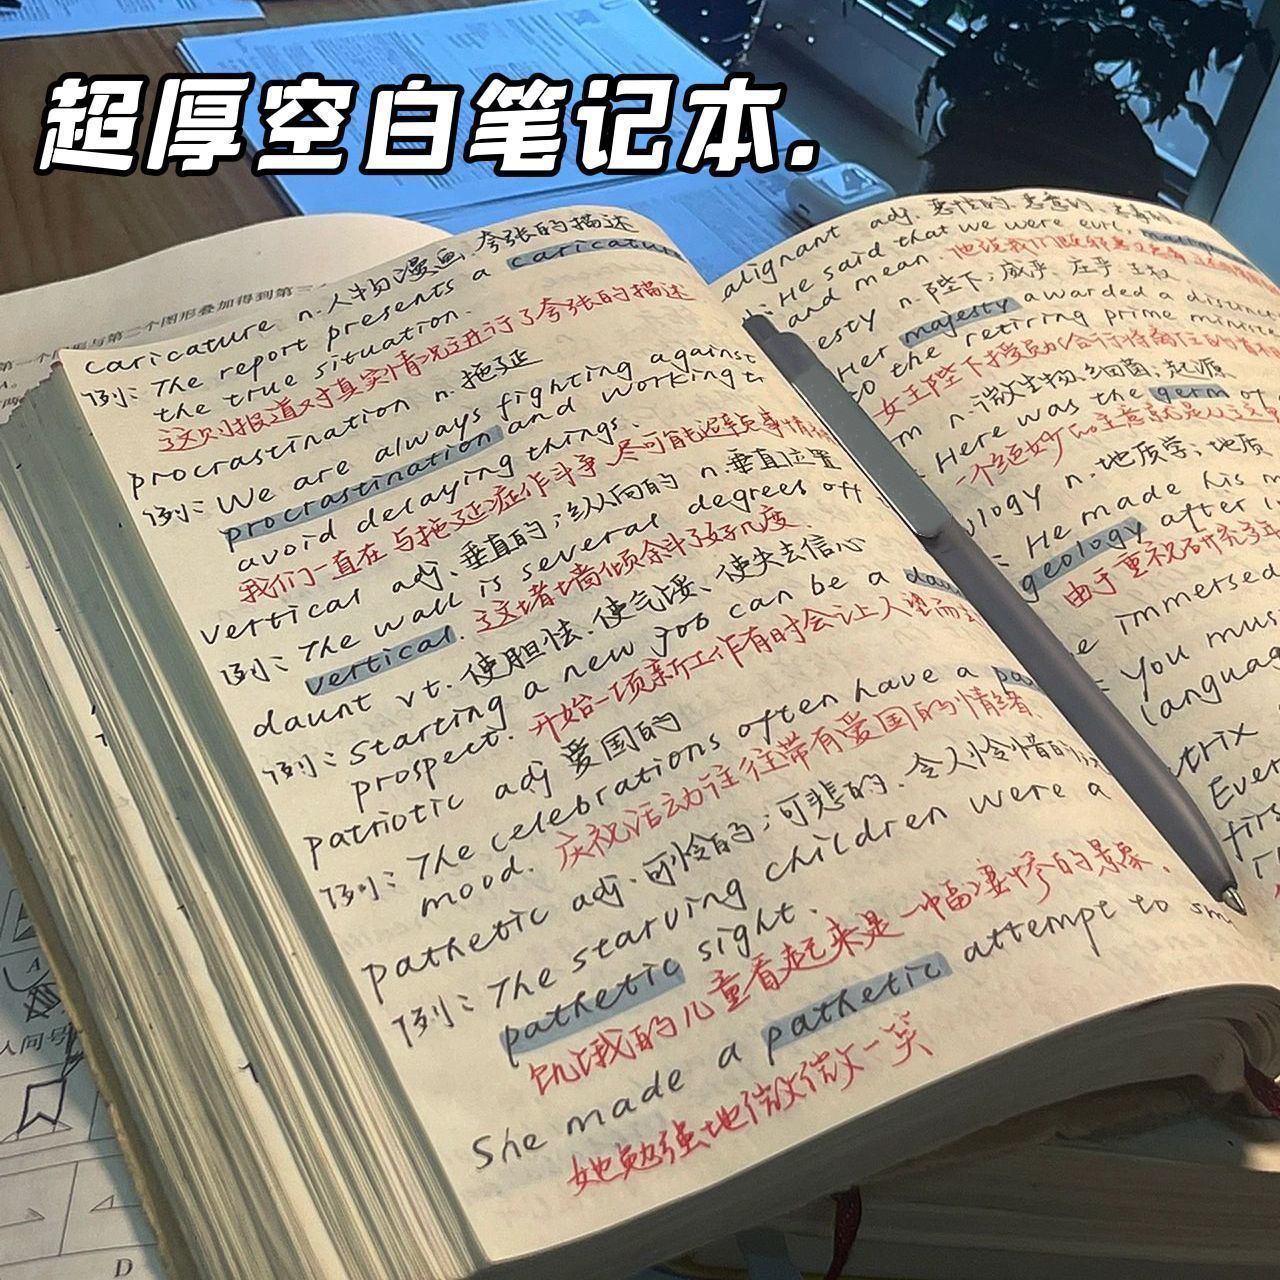 超厚空白笔记本.
第一个图形与第二个图形叠加得到第三
caricature n.人物漫画、夸张的描述
例：The report presents a caricature
the true situation.
这则报道对真实情况进行了夸张的描述
procrastination n.拖延
例：We are always fighting against
procrastination and working t
avoid delaying things.
我们一直在与拖延症作斗争 尽可能避免事情
vertical adj、垂直的；纵向的 n.垂直位置
例：The wall is several degrees off
vertical. 这堵墙倾斜了好几度.
daunt vt.使胆怯、使气馁、使失去信心
例：Starting a new job can be a dau
prospect. 开始一项新工作有时会让人望而
patriotic adj 爱国的
例：The celebrations often have a pa
mood. 庆祝活动往往带有爱国的情绪.
pathetic adj.可怜的；可悲的、令人怜惜的
例：The starving children were a
pathetic sight.
饥饿的儿童看起来是一幅凄惨的景象.
She made a pathetic attempt to sm
她勉强地微微一笑
alignant adj. 恶性的、恶意的、
: He said that we were evil,
and mean.
esty n.陛下；威严、庄严、王权
Her majesty awarded a distinct
to the retiring prime ministe
m n.微生物、细菌；起源
Here was the germ of
一个绝妙的主意就是从这
ology n.地质学；地质
: He made his m
geology after i
由于重视研究
e immersed
: You mus
languag
trix
Ever
firs
人问号
D